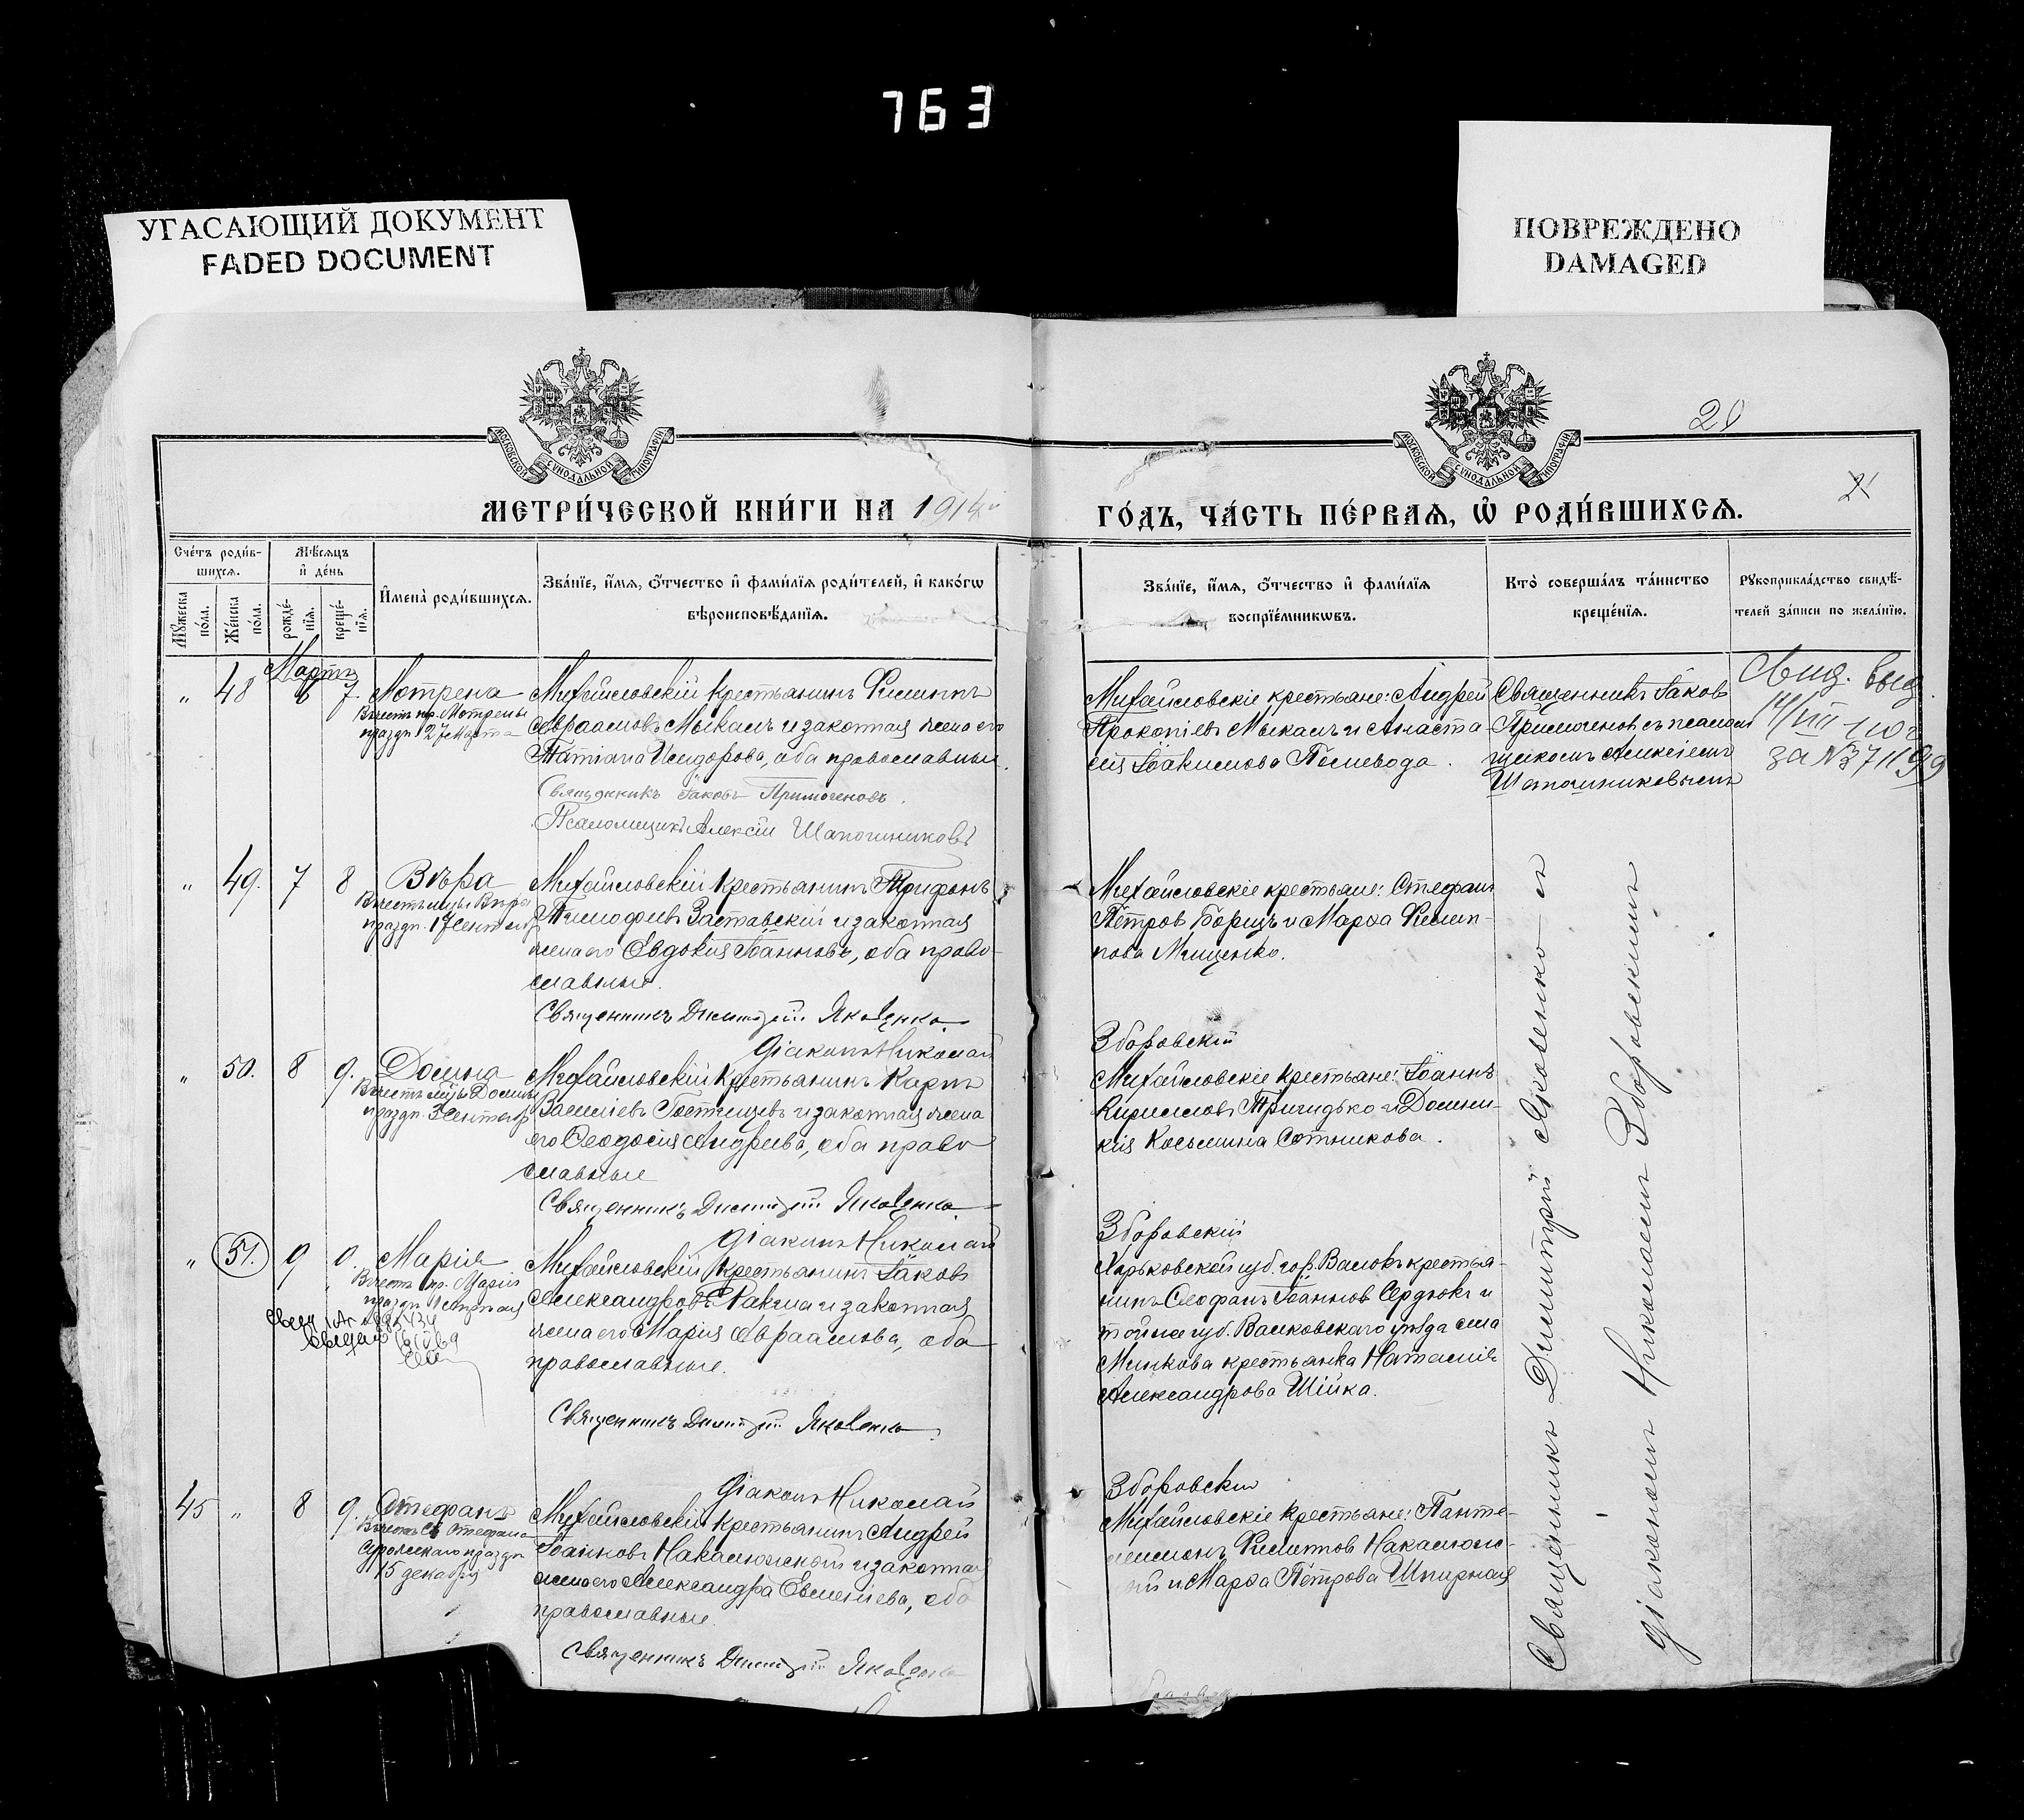 763
УГАСАЮЩИЙ ДОКУМЕНТ
FADED DOCUMENT
ПОВРЕЖДЕНО
DAMAGED
МОСКОВСКОЙ СѴНОДАЛЬНОЙ ТИПОГРАФІИ
МОСКОВСКОЙ СѴНОДАЛЬНОЙ ТИПОГРАФІИ
20
21
МЕТРИ́ЧЕСКОЙ КНИ́ГИ НА 1914й
ГО́ДЪ, ЧА́СТЬ ПЕ́РВАѦ, Ѡ҆ РОДИ́ВШИХСѦ.
Сче́тъ роди́в-
шихсѧ.
Мꙋ́жеска по́ла.
Же́нска по́ла.
Мѣ́сѧцъ
и҆ де́нь
рожде́-
нїѧ.
креще́-
нїѧ.
И҆мена̀ роди́вшихсѧ.
Зва́нїе, и҆́мѧ, ѻ҆́тчество и҆ фами́лїѧ роди́телей, и҆ како́гѡ
вѣроисповѣ́данїѧ.
Зва́нїе, и҆́мѧ, ѻ҆́тчество и҆ фами́лїѧ
воспрїе́мникѡвъ.
Кто̀ соверша́лъ та́инство
креще́нїѧ.
Рꙋкоприкла́дство свидѣ́-
телей за́писи по жела́нїю.
Мартъ
" 48 6 7. Мотрена
Въ честь пр. Мотрены
праздн. 27 Марта
Михайловскій крестьянинъ Филиппъ
Авраамовъ Мыкалъ и законная жена его
Татіана Исидорова, оба православные.
Священникъ Іаковъ Примогеновъ.
Псаломщикъ Алексій Шапошниковъ
Михайловскіе крестьане: Андрей
Прокопіевъ Мыкалъ и Анаста
сія Іоакимова
Священникъ Іаковъ
Примогеновъ съ псалом
щикомъ Алексіемъ
Шапошниковымъ
Свид. выд.
за №
" 49. 7 8 Вѣра
Въ честь мцы Вѣры
праздн. 17 Сентября
Михайловскій крестьянинъ Трифонъ
Тимофеевъ Заставскій и законная
жена его Евдокія Іоаннова, оба право-
славные.
Священникъ Димитрій Яковенко.
Діаконъ Николай
Зборовскій
Михайловскіе крестьане: Стефанъ
Петровъ Борщъ и Марѳа Филип-
пова Мищенко.
" 50. 8 9. Домна
Въ честь мцы Домны
праздн. 3 Сентябр
Михайловскій крестьянинъ Карпъ
Василіевъ и законная жена
его Ѳеодосія Андреева, оба право
славные
Священникъ Димитрій Яковенко.
Діаконъ Николай
Зборовскій
Михайловскіе крестьане: Іоаннъ
Кирилловъ и Домни-
кія Косьмина Сотникова.
" 51. 9 9. Марія
Въ честь пр. Маріи
праздн. 1 Апрѣля
Михайловскій крестьянинъ Іаковъ
Александровъ Ракша и законная
жена его Марія Авраамова, оба
православные.
Священникъ Димитрій Яковенко.
Діаконъ Николай
Зборовскій
Харьковской губ. гор. Валокъ крестья-
нинъ Ѳеофанъ Іоанновъ Сердюкъ и
той же губ. Валковскаго уѣзда села
Минкова крестьянка Наталія
Александрова Шійка.
45 " 8 9. Стефанъ
Въ честь Св. Стефана
Сурожскаго праздн
15 декабря
Михайловскій крестьянинъ Андрей
Іоанновъ Накалюжный и законная
жена его Александра Евменіева, оба
православные.
Священникъ Димитрій Яковенко
Михайловскіе крестьане: Панте-
леимонъ Филиповъ Накалюж-
ный и Марѳа Петрова Шпирная
Священникъ Димитрій Яковенко съ
діакономъ Николаемъ Зборовскимъ